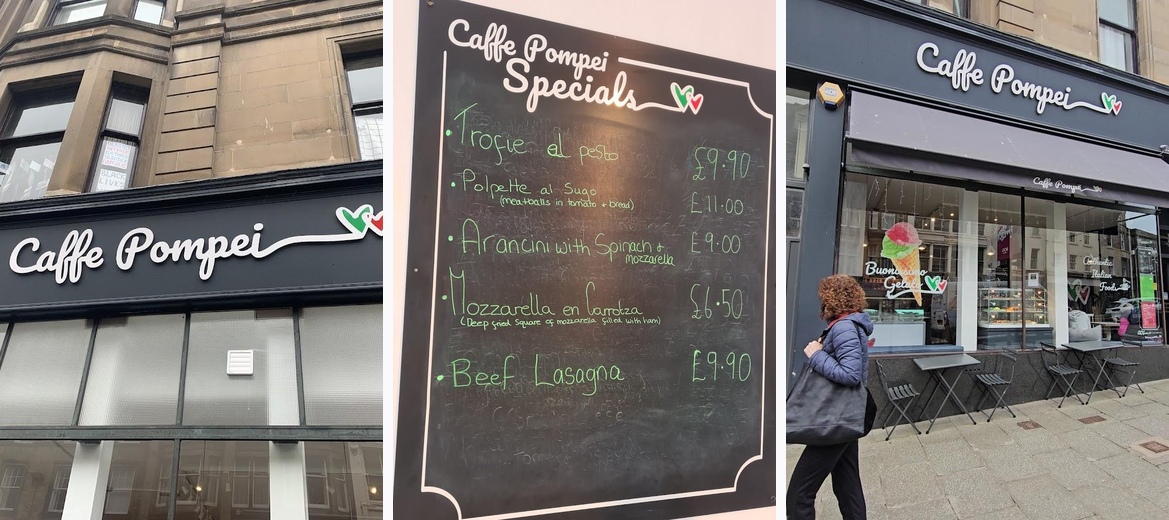 BLACK
LIVES
Caffe Pompei
Caffe Pompei
Specials
• Trofie al pesto £9.90
• Polpette al Sugo £11.00
(meatballs in tomato + bread)
• Arancini with Spinach & £9.00
mozzarella
• Mozzarella en Carrotza £6.50
(Deep fried Square of mozzarella filled with ham)
• Beef Lasagna £9.90
Caffe Pompei
Caffe Pompei
Buonissimo
Gelato
Authentic
Italian
Foods